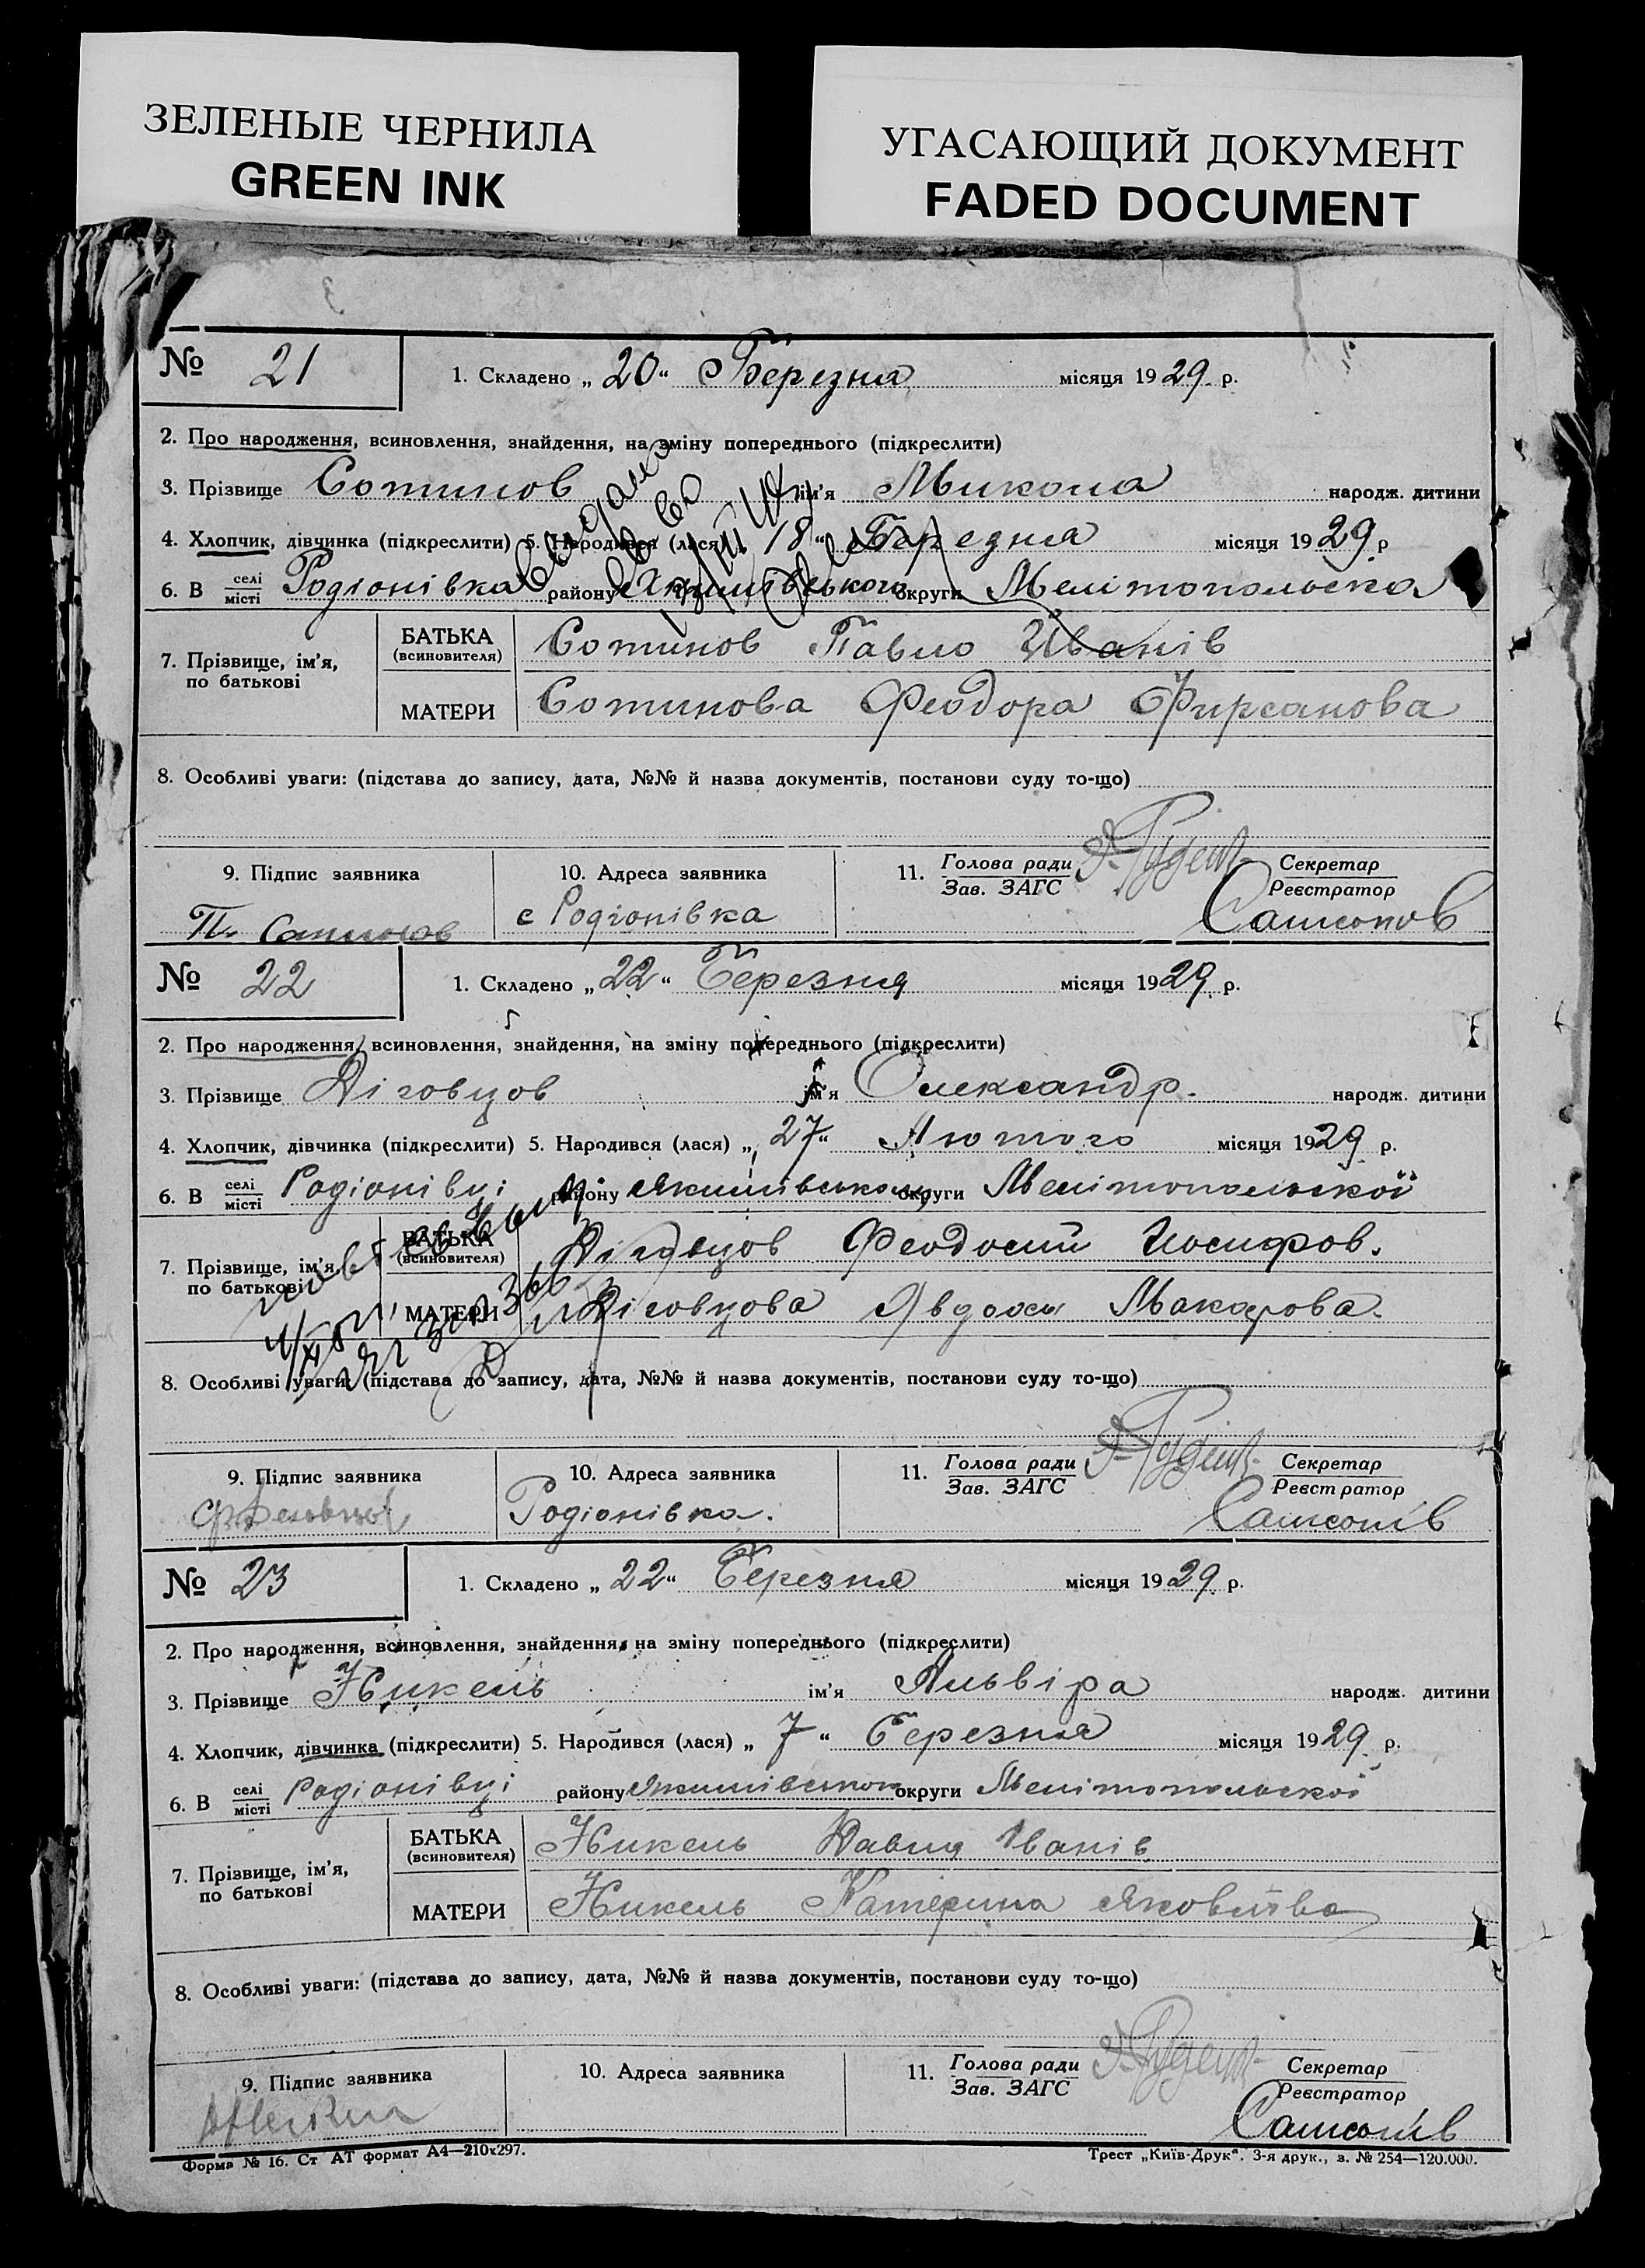 ЗЕЛЕНЫЕ ЧЕРНИЛА
GREEN INK
УГАСАЮЩИЙ ДОКУМЕНТ
FADED DOCUMENT
№ 21 1. Складено „ 20 “ Березня місяця 1929 р.
2. Про народження, всиновлення, знайдення, на зміну попереднього (підкреслити)
3. Прізвище Сотинов ім'я Микола народж. дитини
4. Хлопчик, дівчинка (підкреслити) 5. Народився (лася) „ 18 “ Березня місяця 1929 р
6. В селі місті Родіонівка району Якимівського округи Мелітопольска
7. Прізвище, ім'я, по батькові БАТЬКА (всиновителя) Сотинов Павло Іванів
МАТЕРИ Сотинова Феодора Фирсанова
8. Особливі уваги: (підстава до запису, дата, №№ й назва документів, постанови суду то-що)
9. Підпис заявника 10. Адреса заявника 11. Голова ради Зав. ЗАГС Секретар Реєстратор
с Родіонівка Самсонов
№ 22 1. Складено „ 22 “ Березня місяця 1929 р.
2. Про народження, всиновлення, знайдення, на зміну попереднього (підкреслити)
3. Прізвище Діговцов ім'я Олександр. народж. дитини
4. Хлопчик, дівчинка (підкреслити) 5. Народився (лася) „ 27 “ Лютого місяця 1929 р.
6. В селі місті Родіонівці району Якимівського округи Мелітопольскої
7. Прізвище, ім'я, по батькові БАТЬКА (всиновителя) Діговцов Феодосий Иосифов.
МАТЕРИ Діговцова Явдоха Макарова.
8. Особливі уваги: (підстава до запису, дата, №№ й назва документів, постанови суду то-що)
9. Підпис заявника 10. Адреса заявника 11. Голова ради Зав. ЗАГС Секретар Реєстратор
Родіонівка. Самсонів
№ 23 1. Складено „ 22 “ Березня місяця 1929 р.
2. Про народження, всиновлення, знайдення, на зміну попереднього (підкреслити)
3. Прізвище Никель ім'я Альвіра народж. дитини
4. Хлопчик, дівчинка (підкреслити) 5. Народився (лася) „ 7 “ Березня місяця 1929 р.
6. В селі місті Родіонівці району Якимівського округи Мелітопольскої
7. Прізвище, ім'я, по батькові БАТЬКА (всиновителя) Никель Давид Іванів
МАТЕРИ Никель Катерина Яковлівна
8. Особливі уваги: (підстава до запису, дата, №№ й назва документів, постанови суду то-що)
9. Підпис заявника 10. Адреса заявника 11. Голова ради Зав. ЗАГС Секретар Реєстратор
Самсонів
Форма № 16. Ст АТ формат А4—210х297. Трест „Київ-Друк“. 3-я друк., з. № 254—120.000.